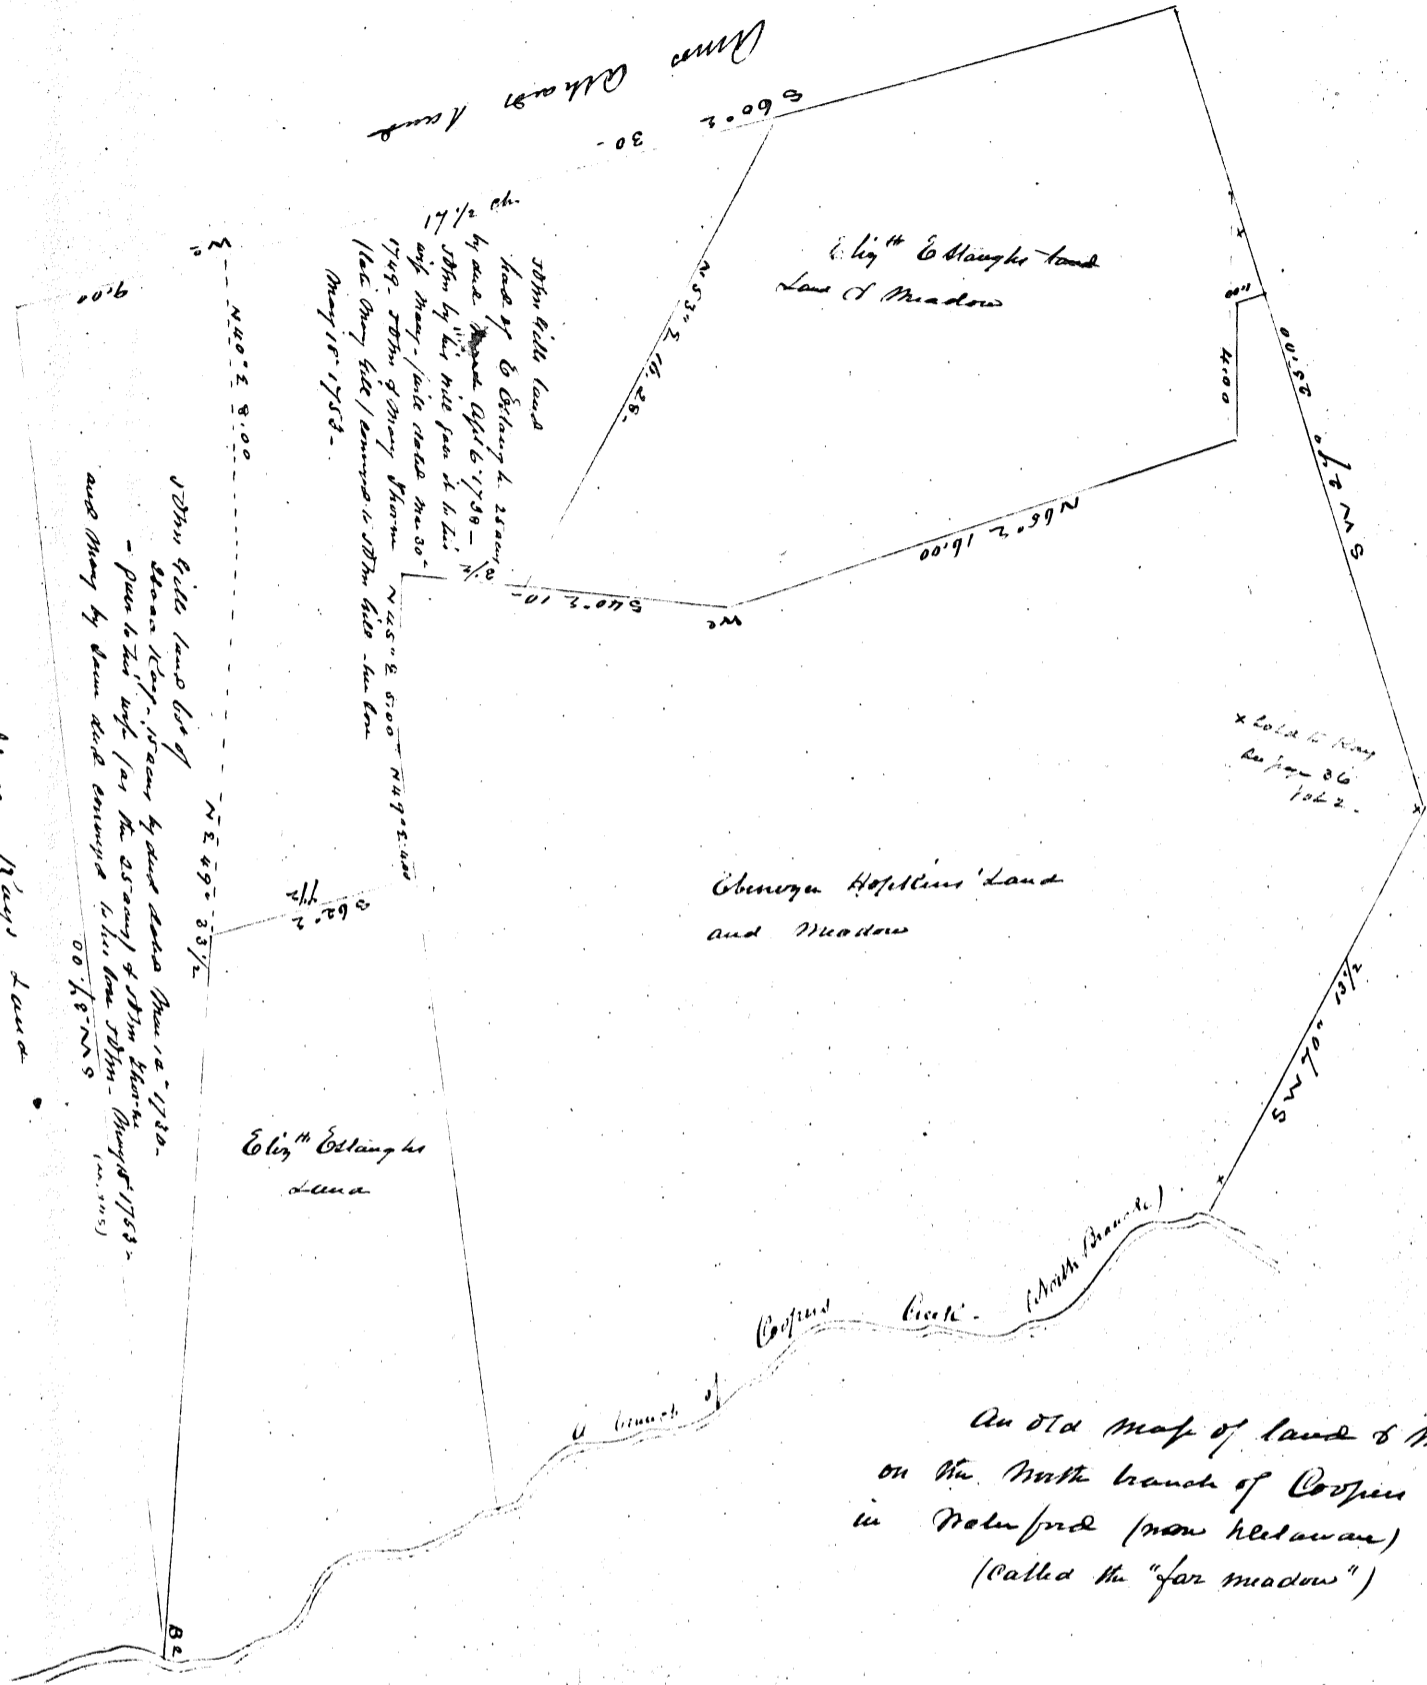 Amos land
S 60° E
30 -
17 1/2
John Gills land
had of E Estaugh 25 acres
by deed 6 1739 -
John by his will gave it to his
wife Mary - will dated 30
1749 - John & Mary Thorne
(late Mary Gill) conveyed to John Gill - her son
May 18 1753 -
N 53° E 16.28 -
Eliz^th Estaughs land
Land & Meadow
1.00
4.00
SW 27° 25.00
N 65° E 16.00
S 40° E 10 -
Wo
2 1/2
N 45° E 5.00
N 49° E 4.00
Wo
9.00
N 40° E 8.00
NE 49° 33 1/2
S 62° E
7 1/2
John Gills land bot of
Kay - 15 acres by deed dated 12 1730 -
- given to his wife (as the 25 acres) & John Thorne
and Mary by same deed conveyed to her son John - May 18 1753 -
SW 37.00
Kays Land
x Sold to Kay
See page 36
Vol 2 -
Ebenezer Hopkins' Land
and Meadow
SW 70° 13 1/2
Eliz^th Estaughs
Land
Be
A branch of Coopers Creek - (North Branch)
An old map of land &
on the North branch of Coopers
in Waterford (now Delaware)
(called the "far meadow")